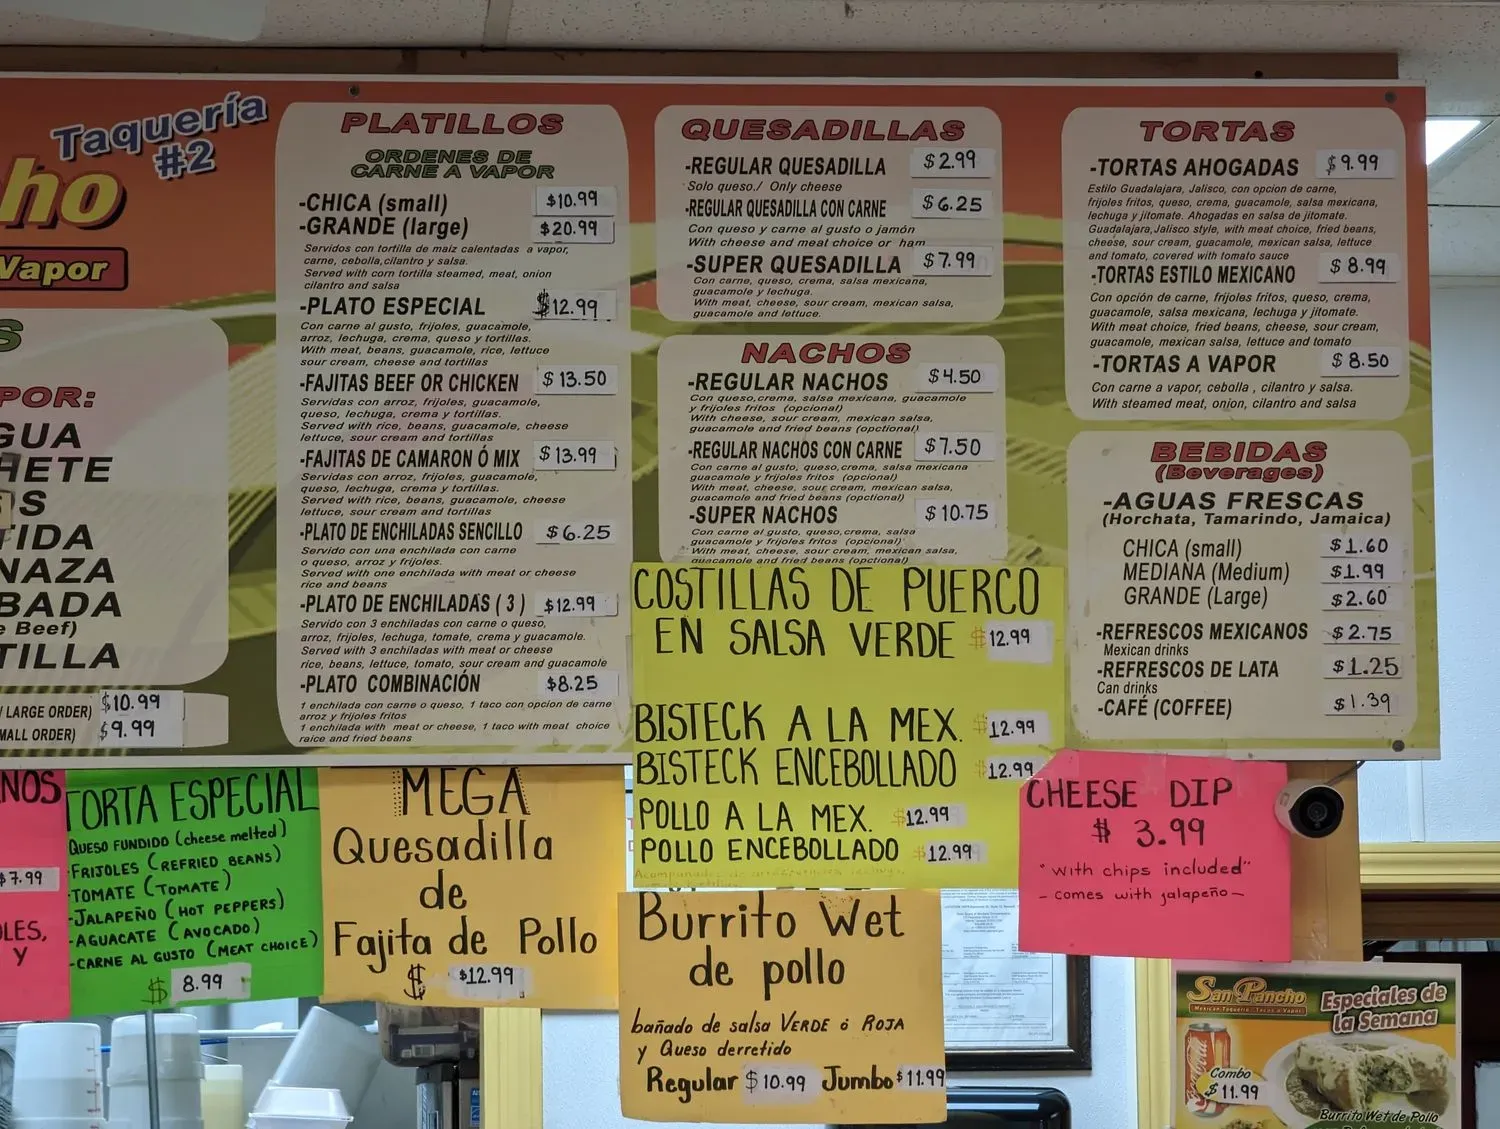 Taquería
#2
ho
Vapor
S
POR:
GUA
HETE
OS
TIDA
NAZA
BADA
e Beef)
TILLA
/ LARGE ORDER) $10.99
MALL ORDER) $9.99
PLATILLOS
ORDENES DE
CARNE A VAPOR
-CHICA (small) $10.99
-GRANDE (large) $20.99
Servidos con tortilla de maiz calentadas a vapor,
carne, cebolla,cilantro y salsa.
Served with corn tortilla steamed, meat, onion
cilantro and salsa
-PLATO ESPECIAL $12.99
Con carne al gusto, frijoles, guacamole,
arroz, lechuga, crema, queso y tortillas.
With meat, beans, guacamole, rice, lettuce
sour cream, cheese and tortillas
-FAJITAS BEEF OR CHICKEN $13.50
Servidas con arroz, frijoles, guacamole,
queso, lechuga, crema y tortillas.
Served with rice, beans, guacamole, cheese
lettuce, sour cream and tortillas
-FAJITAS DE CAMARON Ó MIX $13.99
Servidas con arroz, frijoles, guacamole,
queso, lechuga, crema y tortillas.
Served with rice, beans, guacamole, cheese
lettuce, sour cream and tortillas
-PLATO DE ENCHILADAS SENCILLO $6.25
Servido con una enchilada con carne
o queso, arroz y frijoles.
Served with one enchilada with meat or cheese
rice and beans
-PLATO DE ENCHILADAS ( 3 ) $12.99
Servido con 3 enchiladas con carne o queso,
arroz, frijoles, lechuga, tomate, crema y guacamole.
Served with 3 enchiladas with meat or cheese
rice, beans, lettuce, tomato, sour cream and guacamole
-PLATO COMBINACIÓN $8.25
1 enchilada con carne o queso, 1 taco con opcion de carne
arroz y frijoles fritos
1 enchilada with meat or cheese, 1 taco with meat choice
raice and fried beans
QUESADILLAS
-REGULAR QUESADILLA $2.99
Solo queso./ Only cheese
-REGULAR QUESADILLA CON CARNE $6.25
Con queso y carne al gusto o jamón
With cheese and meat choice or ham
-SUPER QUESADILLA $7.99
Con carne, queso, crema, salsa mexicana,
guacamole y lechuga.
With meat, cheese, sour cream, mexican salsa,
guacamole and lettuce.
NACHOS
-REGULAR NACHOS $4.50
Con queso,crema, salsa mexicana, guacamole
y frijoles fritos (opcional)
With cheese, sour cream, mexican salsa,
guacamole and fried beans (optional)
-REGULAR NACHOS CON CARNE $7.50
Con carne al gusto, queso,crema, salsa mexicana
guacamole y frijoles fritos (opcional)
With meat, cheese, sour cream, mexican salsa,
guacamole and fried beans (opctional)
-SUPER NACHOS $10.75
Con carne al gusto, queso,crema, salsa
guacamole y frijoles fritos (opcional)
With meat, cheese, sour cream, mexican salsa,
guacamole and fried beans (opctional)
TORTAS
-TORTAS AHOGADAS $9.99
Estilo Guadalajara, Jalisco, con opcion de carne,
frijoles fritos, queso, crema, guacamole, salsa mexicana,
lechuga y jitomate. Ahogadas en salsa de jitomate.
Guadalajara,Jalisco style, with meat choice, fried beans,
cheese, sour cream, guacamole, mexican salsa, lettuce
and tomato, covered with tomato sauce
-TORTAS ESTILO MEXICANO $8.99
Con opción de carne, frijoles fritos, queso, crema,
guacamole, salsa mexicana, lechuga y jitomate.
With meat choice, fried beans, cheese, sour cream,
guacamole, mexican salsa, lettuce and tomato
-TORTAS A VAPOR $8.50
Con carne a vapor, cebolla , cilantro y salsa.
With steamed meat, onion, cilantro and salsa
BEBIDAS
(Beverages)
-AGUAS FRESCAS
(Horchata, Tamarindo, Jamaica)
CHICA (small) $1.60
MEDIANA (Medium) $1.99
GRANDE (Large) $2.60
-REFRESCOS MEXICANOS $2.75
Mexican drinks
-REFRESCOS DE LATA $1.25
Can drinks
-CAFÉ (COFFEE) $1.39
NOS
$7.99
OLES,
Y
TORTA ESPECIAL
QUESO FUNDIDO (cheese melted)
-FRIJOLES (REFRIED BEANS)
-TOMATE (TOMATE)
-JALAPEÑO (HOT PEPPERS)
-AGUACATE (AVOCADO)
-CARNE AL GUSTO (MEAT CHOICE)
$ 8.99
MEGA
Quesadilla
de
Fajita de Pollo
$ $12.99
COSTILLAS DE PUERCO
EN SALSA VERDE $12.99
BISTECK A LA MEX. $12.99
BISTECK ENCEBOLLADO $12.99
POLLO A LA MEX. $12.99
POLLO ENCEBOLLADO $12.99
Burrito Wet
de pollo
bañado de salsa VERDE ó ROJA
y Queso derretido
Regular $10.99 Jumbo $11.99
CHEESE DIP
$ 3.99
"with chips included"
- comes with jalapeño -
San Pancho
Especiales de
la Semana
Combo
$11.99
Burrito Wet de Pollo